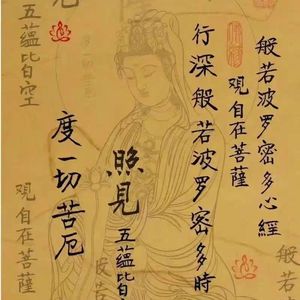 般若波罗密多心經
觀自在菩薩
行深般若波罗密多時
照見五蘊皆
度一切苦厄
五蘊皆空
觀自在菩薩